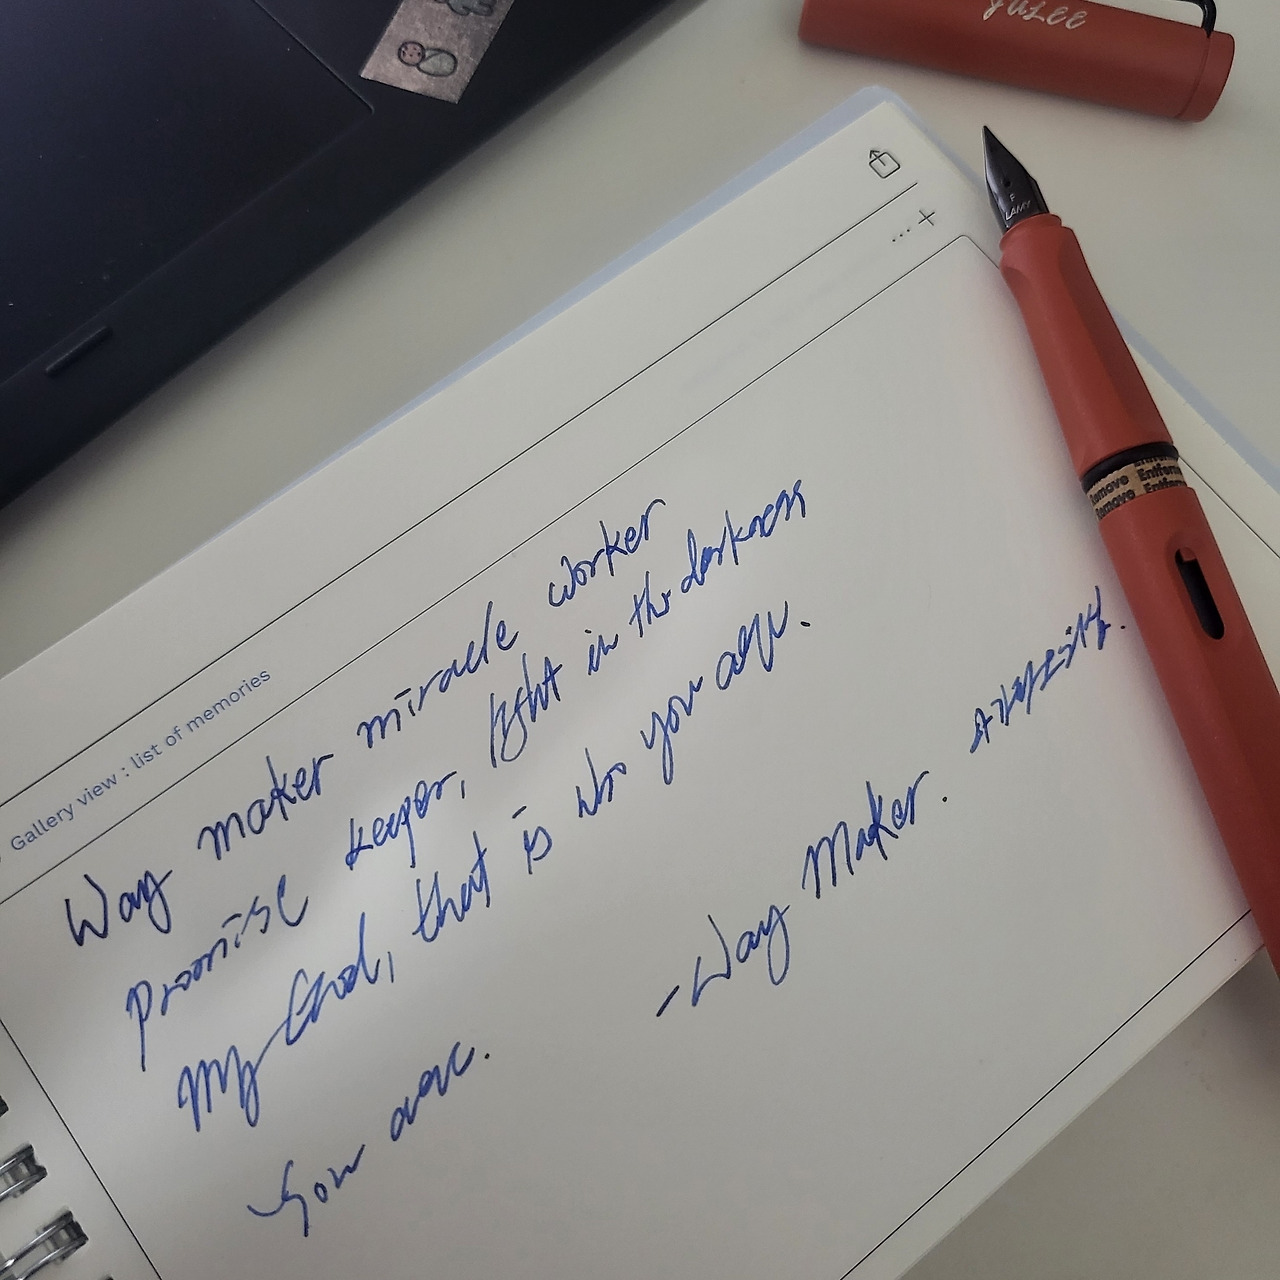 JULEE
F
LAMY
Remove Entfern
Remove Entfern
Gallery view : list of memories
Way maker miracle worker
promise keeper, light in the darkness
My God, that is who you are.
You are.
- Way Maker.